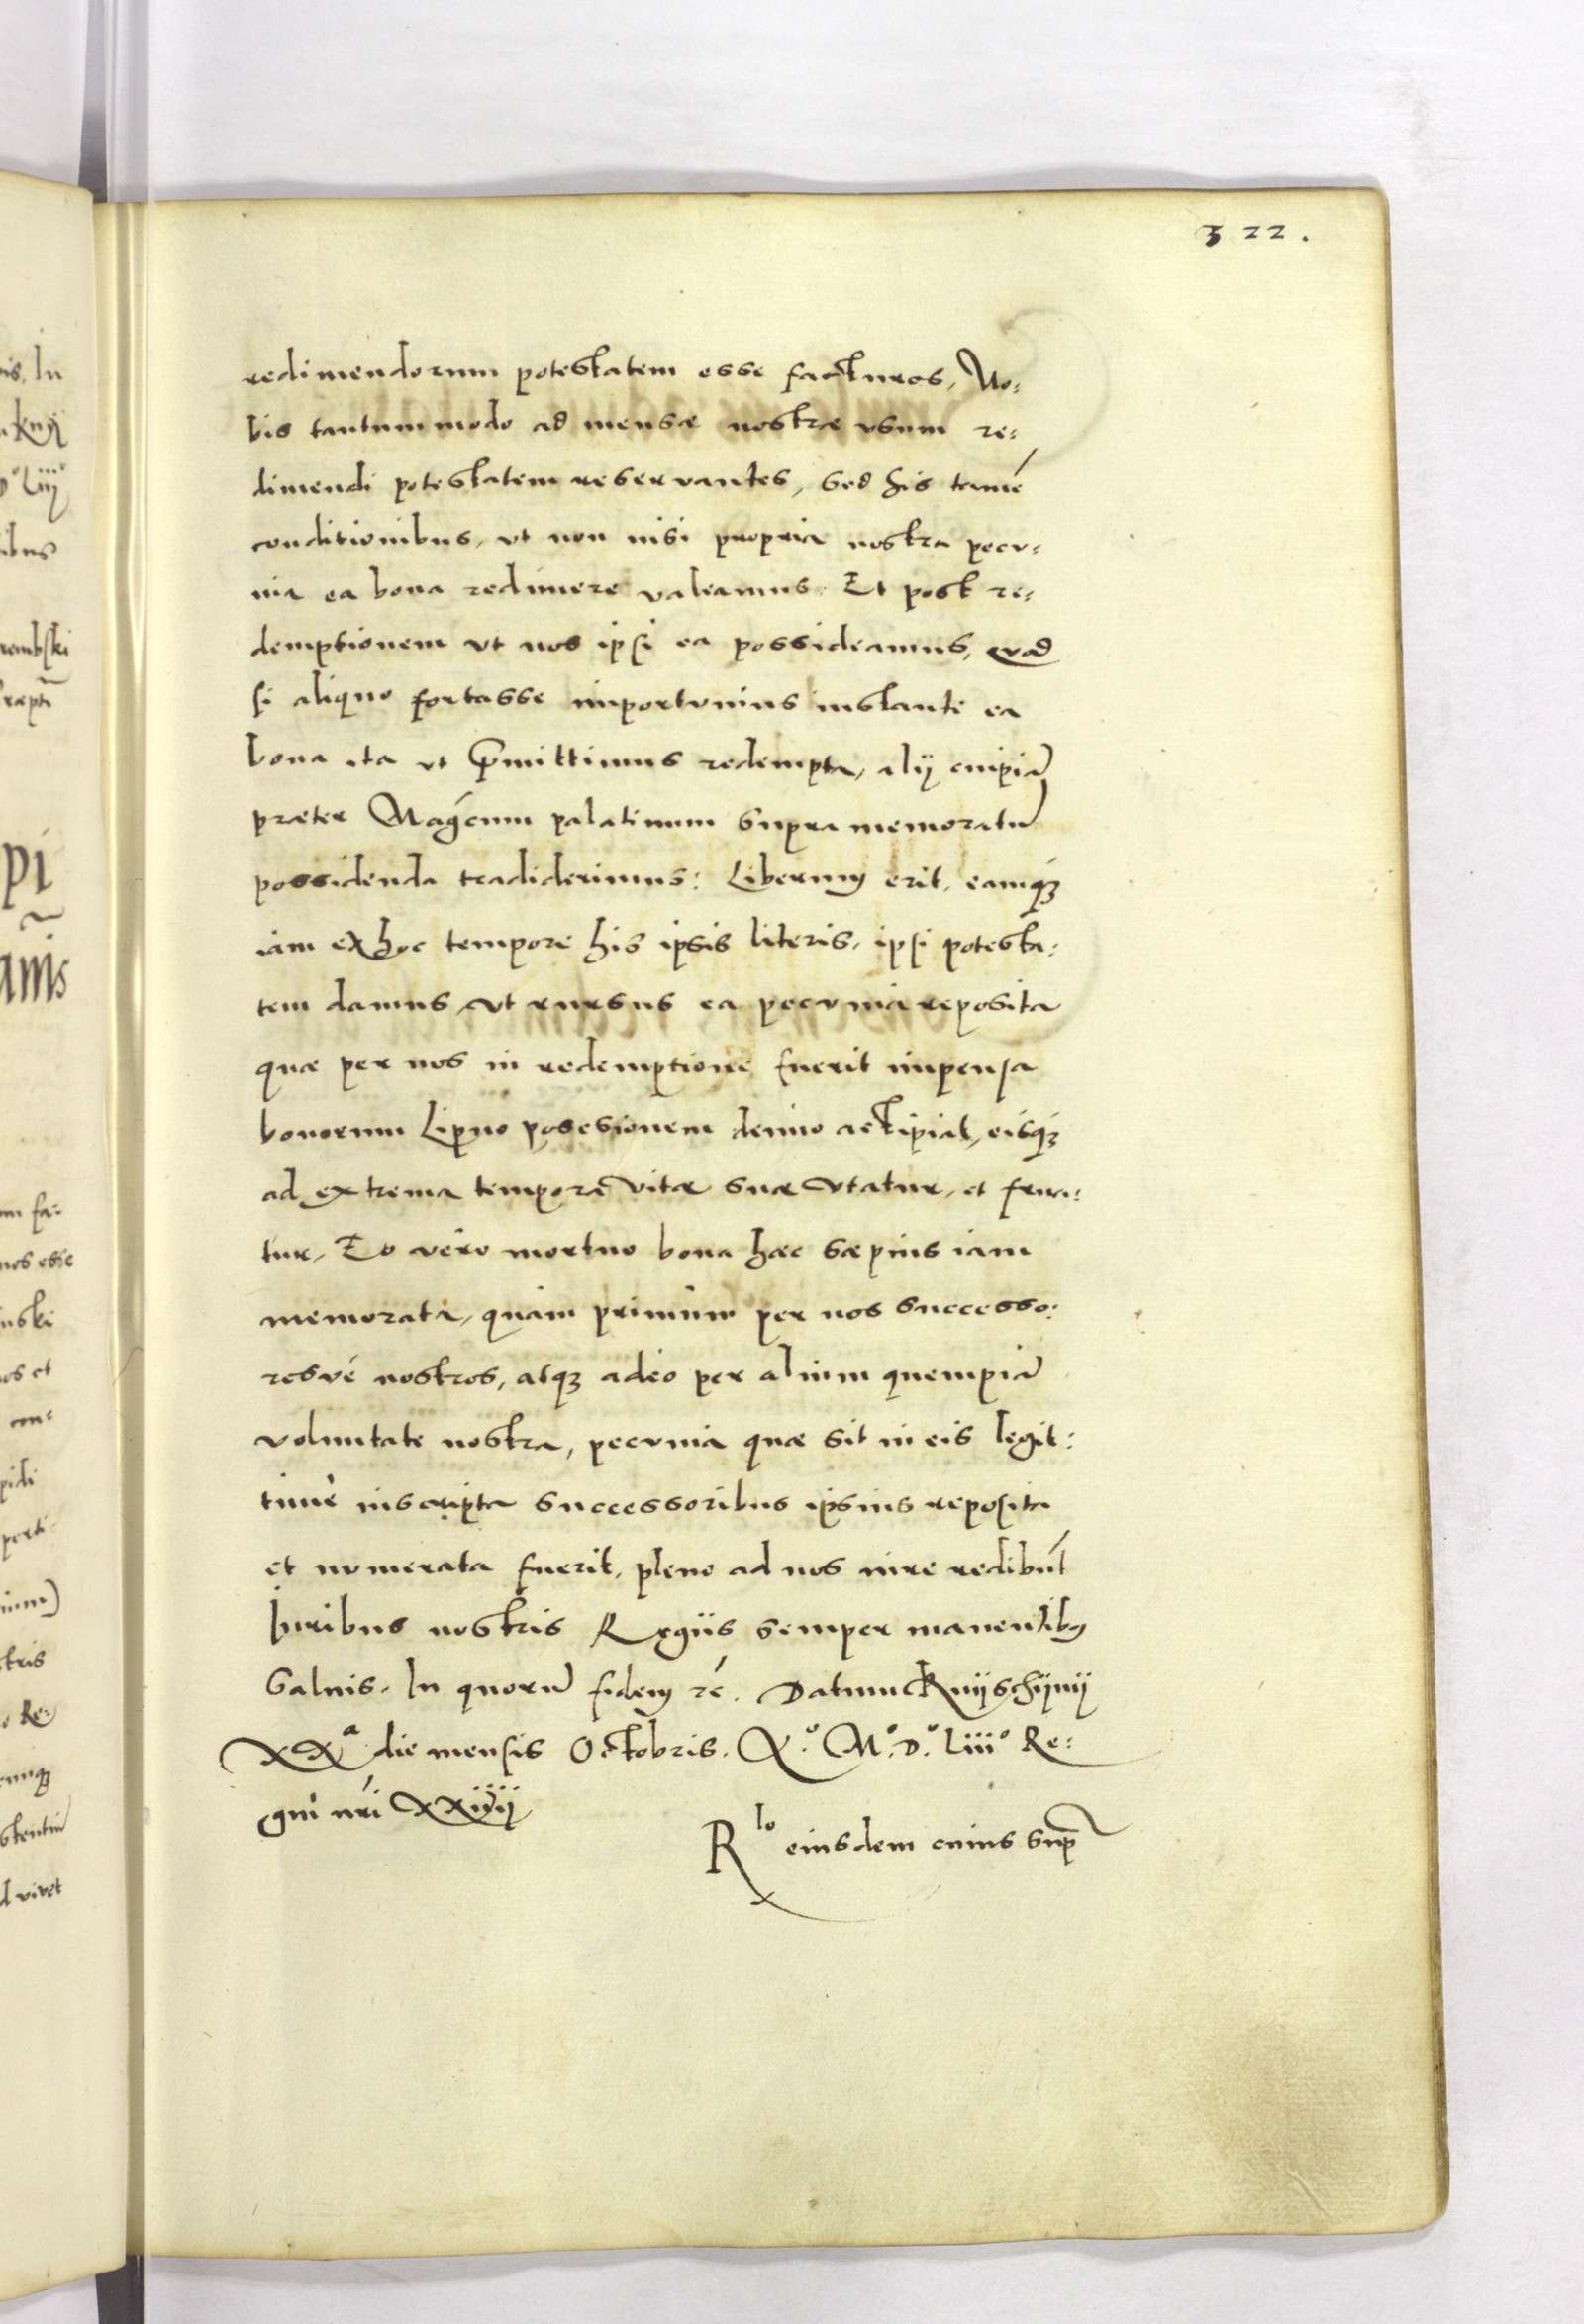 322.
redimendorum potestatem esse facturos, No:
bis tantummodo ad mensæ nostræ vsum re:
dimendi potestatem reservantes, sed his tamẽ
conditionibus, vt non nisi propria nostra pecv:
nia ea bona redimere valeamus. Et post re:
demptionem vt nos ipsi ea possideamus, qvod
si aliquo fortasse importvnius instante ea
bona ita vt p̃mittimus redempta, alij cuipiã
præter Magcum palatinum supra memoratũ
possidenda tradiderimus: Liberum erit, eamq3
iam ex hoc tempore his ipsis literis, ipsi potesta:
tem damus, vt rursus ea pecvnia reposita
quæ per nos in redemptione fuerit impensa
bonorum Lipno posesionem denuo actipiat, eisq3
ad extrema tempora vitæ suæ vtatur, et frua:
tur, Eo vero mortuo bona hæc sæpius iam
memorata, quàm primùm per nos successo:
resvé nostros, atq3 adeo per alium quempiã
voluntate nostra, pecvnia quæ sit in eis legit:
timè inscripta successoribus ipsius reposita
et nvmerata fuerit, pleno ad nos iure redibũt
Iuribus nostris Regiis semper manentibus
Salvis. In quorũ fidem rẽ. Datum Knijschijnij
XXa die mensis Octobris. Ao. Mo. Do. Liiiio Re:
gni nri XXiiiij
Rlo eiusdem cuius sup